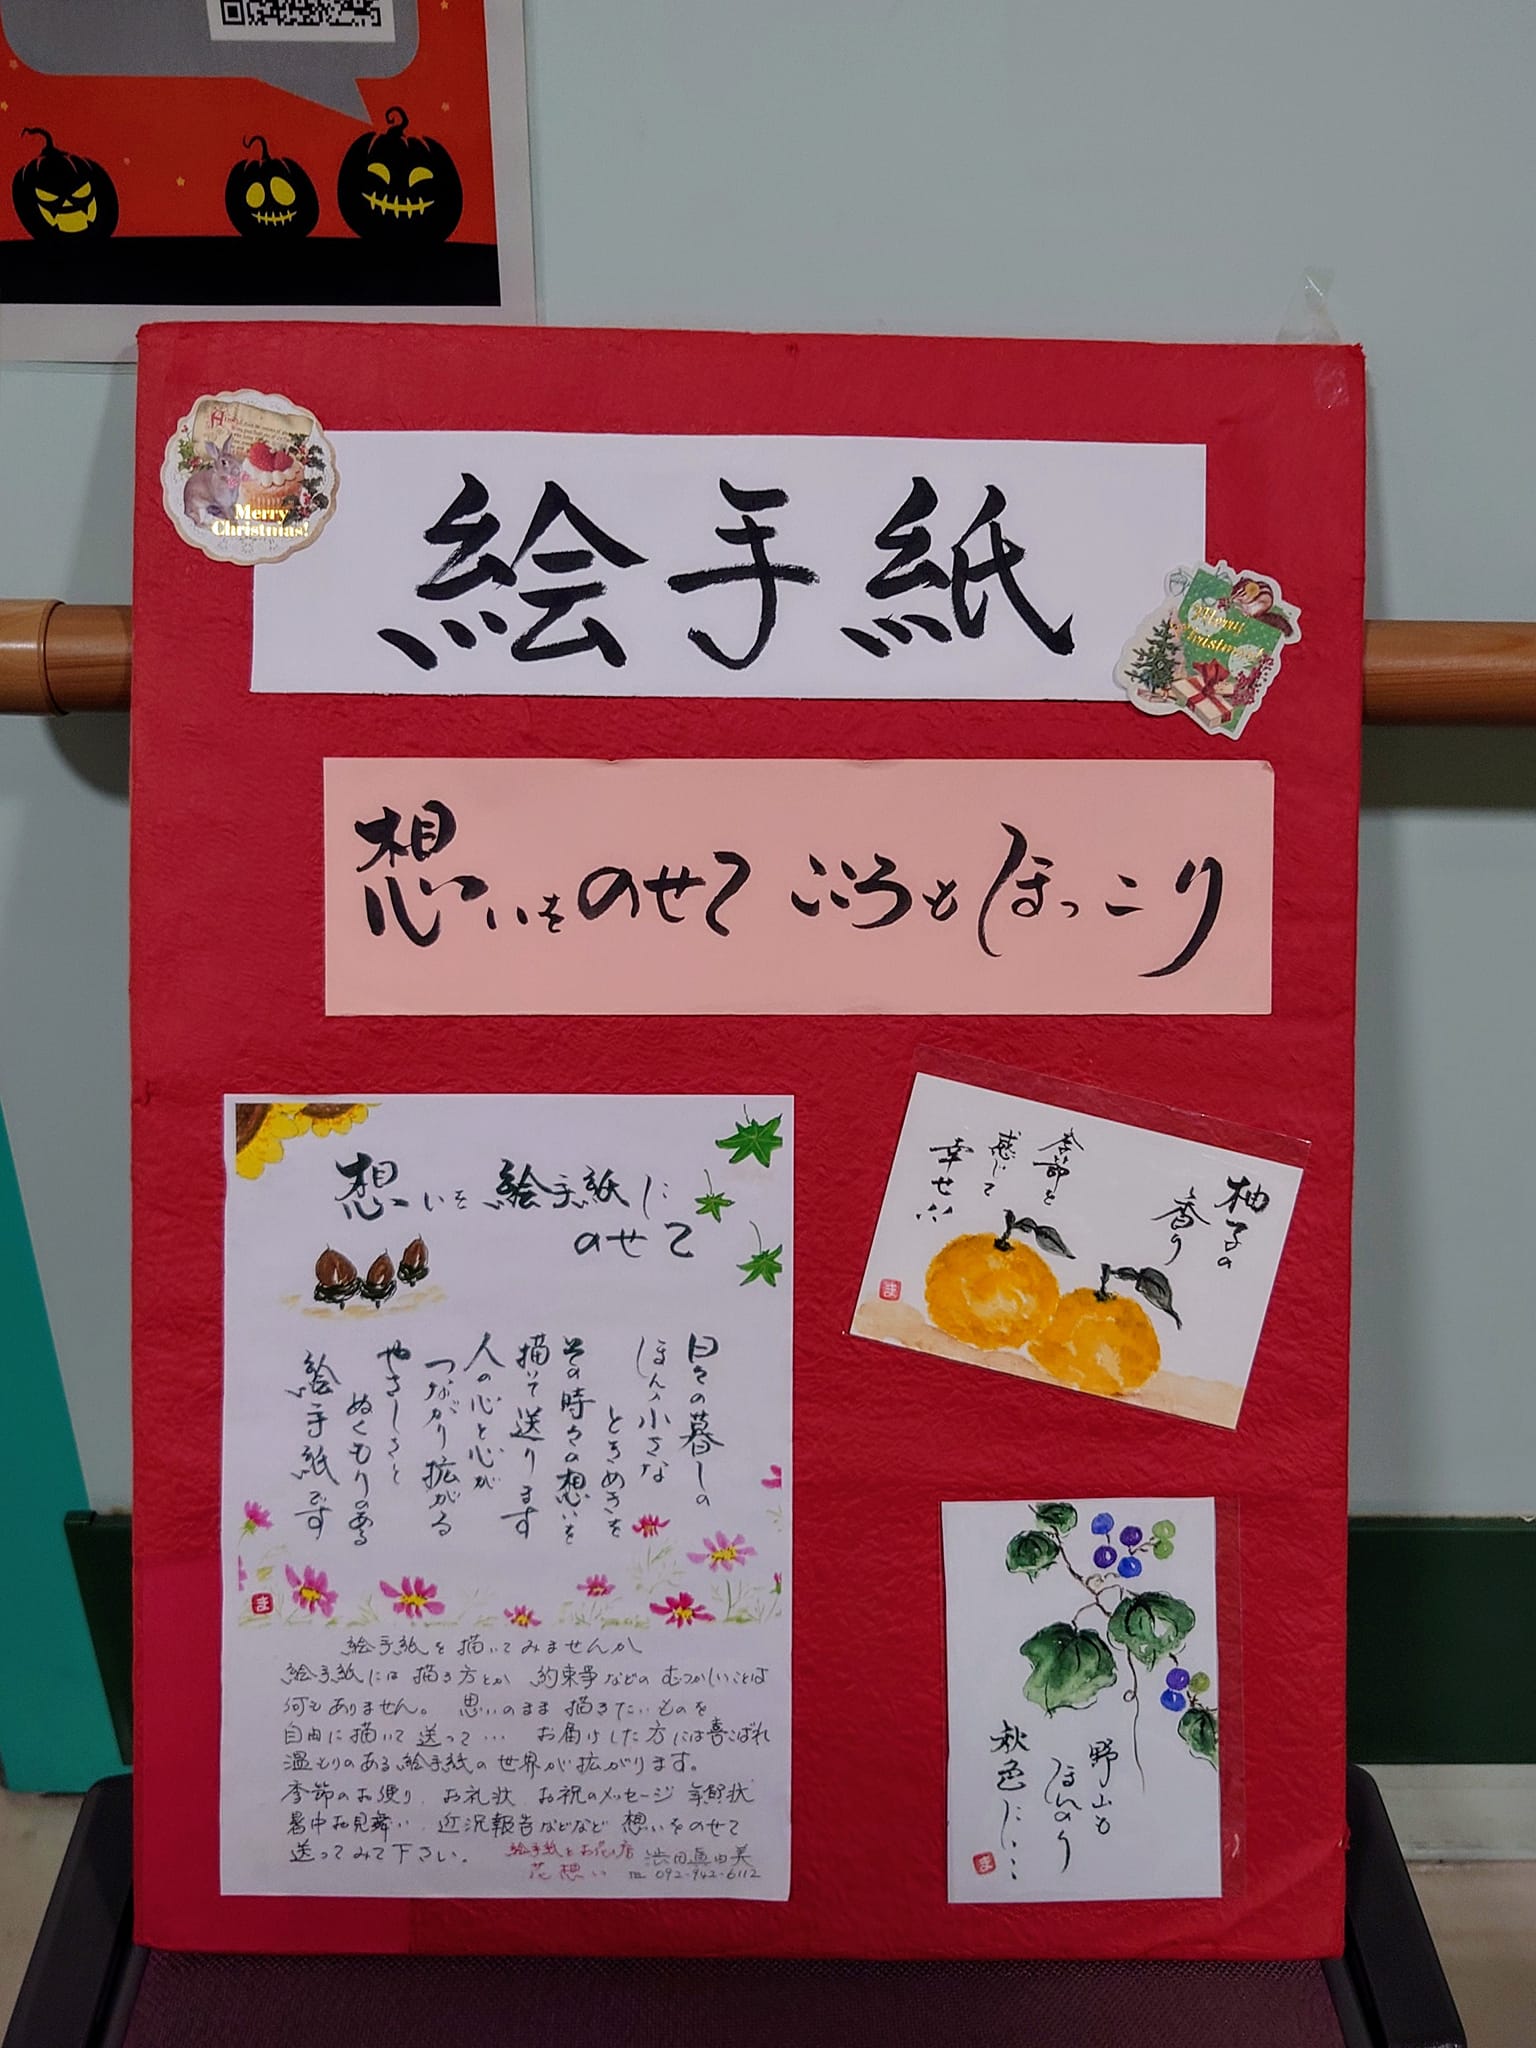 Merry
Christmas!
絵手紙
Merry
Christmas!
想いをのせて こころもほっこり
想いを絵手紙に
のせて
日々の暮しの
ほんの小さな
ときめきを
その時々の想いを
描いて送ります
人の心と心が
つながり拡がる
やさしさと
ぬくもりのある
絵手紙です
ま
絵手紙を描いてみませんか
絵手紙には描き方とか 約束事などの むつかしいことは
何もありません。 思いのまま 描きたいものを
自由に描いて送って… お届けした方には喜こばれ
温もりのある絵手紙の世界が拡がります。
季節のお便り、お礼状 お祝のメッセージ 年賀状
暑中お見舞い、近況報告などなど 想いをのせて
送ってみて下さい。
絵手紙とお花の店
花想い
渋田眞由美
TEL 092-942-6112
柚子の
香り
季節を
感じて
幸せ
ま
野山も
ほんのり
秋色に…
ま